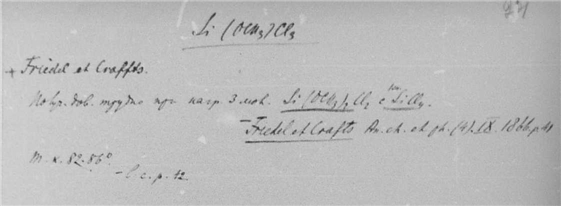 Si (OCH₃)Cl₃
+ Friedel et Craffts.
Получ. дов. трудно при нагр. 3 мол. Si(OCH₃)₂Cl₂ с SiCl₄.
Friedel et Crafts An. ch. et ph. (4). IX. 1866. p. 11
Т. к. 82-86°.
– l. c. p. 12